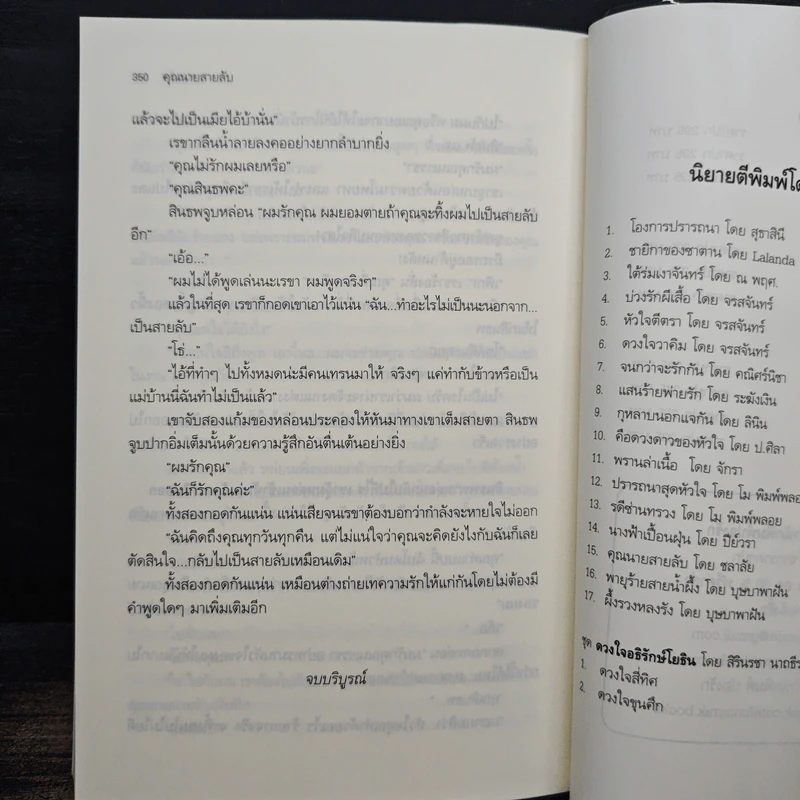 350 คุณนายสายลับ
แล้วจะไปเป็นเมียไอ้บ้านั่น”
เรขากลืนน้ำลายลงคออย่างยากลำบากยิ่ง
“คุณไม่รักผมเลยหรือ”
“คุณสินธพคะ”
สินธพจูบหล่อน “ผมรักคุณ ผมยอมตายถ้าคุณจะทิ้งผมไปเป็นสายลับ
อีก”
“เอ้อ...”
“ผมไม่ได้พูดเล่นนะเรขา ผมพูดจริงๆ”
แล้วในที่สุด เรขาก็กอดเขาเอาไว้แน่น “ฉัน...ทำอะไรไม่เป็นนะนอกจาก...
เป็นสายลับ”
“โธ่...”
“ไอ้ที่ทำๆ ไปทั้งหมดน่ะมีคนเทรนมาให้ จริงๆ แค่ทำกับข้าวหรือเป็น
แม่บ้านนี่ฉันทำไม่เป็นแล้ว”
เขาจับสองแก้มของหล่อนประคองให้หันมาทางเขาเต็มสายตา สินธพ
จูบปากอิ่มเต็มนั้นด้วยความรู้สึกอันตื่นเต้นอย่างยิ่ง
“ผมรักคุณ”
“ฉันก็รักคุณค่ะ”
ทั้งสองกอดกันแน่น แน่นเสียจนเรขาต้องบอกว่ากำลังจะหายใจไม่ออก
“ฉันคิดถึงคุณทุกวันทุกคืน แต่ไม่แน่ใจว่าคุณจะคิดยังไงกับฉันก็เลย
ตัดสินใจ...กลับไปเป็นสายลับเหมือนเดิม”
ทั้งสองกอดกันแน่น เหมือนต่างถ่ายเทความรักให้แก่กันโดยไม่ต้องมี
คำพูดใดๆ มาเพิ่มเติมอีก
จบบริบูรณ์
นิยายตีพิมพ์โด
1. โองการปรารถนา โดย สุธาสินี
2. ชายิกาของซาตาน โดย Lalanda
3. ใต้ร่มเงาจันทร์ โดย ณ พฤศ.
4. บ่วงรักผีเสื้อ โดย จรสจันทร์
5. หัวใจตีตรา โดย จรสจันทร์
6. ดวงใจวาคิม โดย จรสจันทร์
7. จนกว่าจะรักกัน โดย คณิศร์นิชา
8. แสนร้ายพ่ายรัก โดย ระฆังเงิน
9. กุหลาบนอกแจกัน โดย ลินิน
10. คือดวงดาวของหัวใจ โดย ป.ศิลา
11. พรานล่าเนื้อ โดย จักรา
12. ปรารถนาสุดหัวใจ โดย โม พิมพ์พลอย
13. รตีซ่านทรวง โดย โม พิมพ์พลอย
14. นางฟ้าเปื้อนฝุ่น โดย ปีย์วรา
15. คุณนายสายลับ โดย ชลาลัย
16. พายุร้ายสายน้ำผึ้ง โดย บุษบาพาฝัน
17. ผึ้งรวงหลงรัง โดย บุษบาพาฝัน
ชุด ดวงใจอธิรักษ์โยธิน โดย สิรินรชา นาถธีร
1. ดวงใจสี่ทิศ
2. ดวงใจขุนศึก